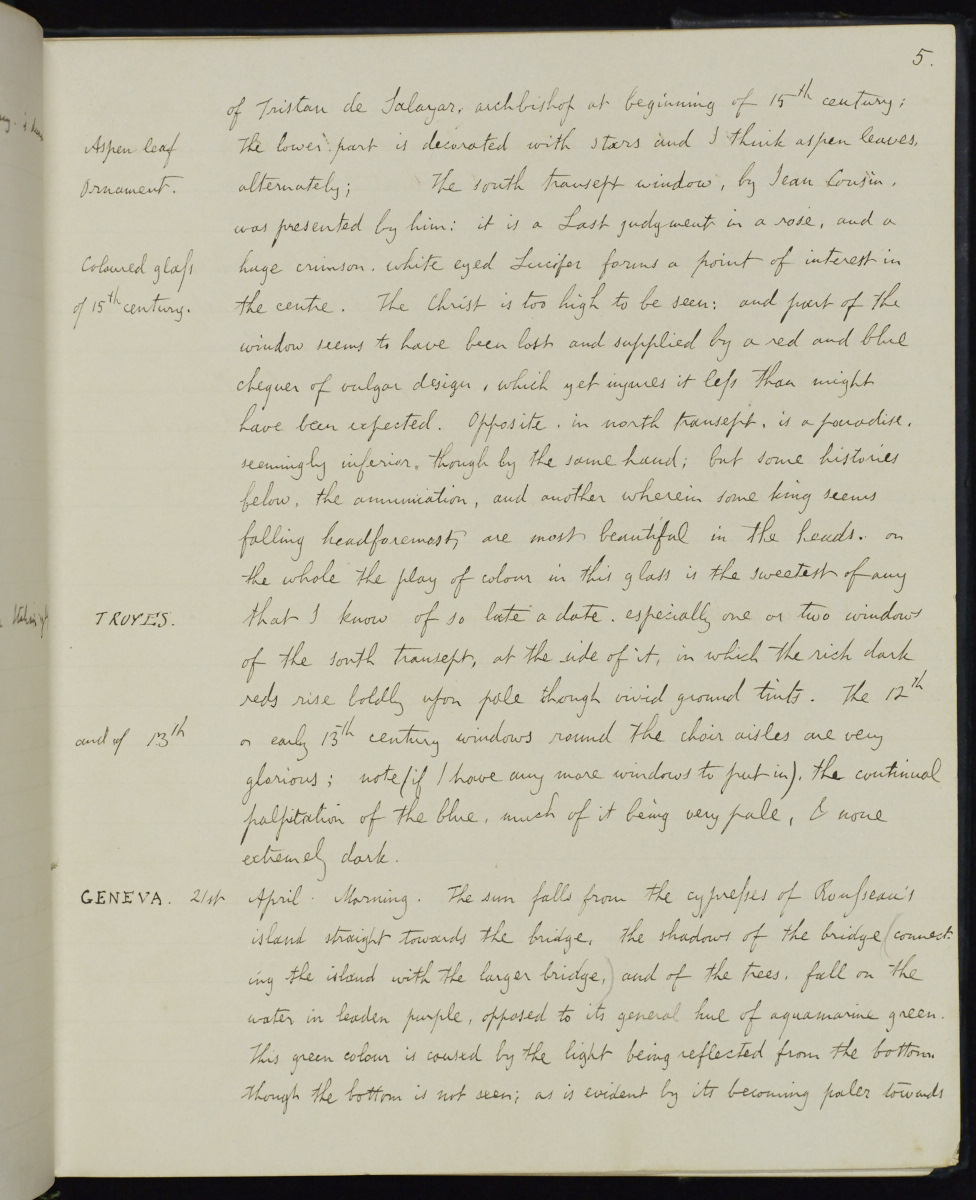 5.
of Tristan de Salazar, archbishop at beginning of 15th century;
Aspen leaf the lower part is decorated with stars and I think aspen leaves,
Ornament. alternately; The south transept window, by Jean Cousin,
was presented by him: it is a Last judgment in a rose, and a
Coloured glass huge crimson, white eyed Lucifer forms a point of interest in
of 15th century. the centre. The Christ is too high to be seen: and part of the
window seems to have been lost and supplied by a red and blue
chequer of vulgar design, which yet injures it less than might
have been expected. Opposite, in north transept, is a paradise,
seemingly inferior, though by the same hand; but some histories
below, the annunciation, and another wherein some king seems
falling headforemost, are most beautiful in the heads. on
the whole the play of colour in this glass is the sweetest of any
TROYES. that I know of so late a date. especially one or two windows
of the south transept, at the side of it, in which the rich dark
reds rise boldly upon pale though vivid ground tints. The 12th
and of 13th or early 13th century windows round the choir aisles are very
glorious; note (if I have any more windows to put in), the continual
palpitation of the blue, much of it being very pale, & none
extremely dark.
GENEVA. 21st April. Morning. The sun falls from the cypresses of Rousseau's
island straight towards the bridge, the shadows of the bridge (connect-
ing the island with the larger bridge,) and of the trees, fall on the
water in leaden purple, opposed to its general hue of aquamarine green.
This green colour is caused by the light being reflected from the bottom,
though the bottom is not seen; as is evident by its becoming paler towards